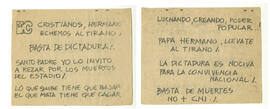 CRISTIANOS, HERMANOS
ECHEMOS AL TIRANO!.
BASTA DE DICTADURA!.
SANTO PADRE YO LO INVITO
A REZAR, POR LOS MUERTOS
DEL ESTADIO!.
LO QUE SUBE TIENE QUE BAJAR
EL QUE MATA TIENE QUE CAGAR.
LUCHANDO, CREANDO, PODER
POPULAR.
PAPA HERMANO, LLEVATE
AL TIRANO!.
LA DICTADURA ES NOCIVA
PARA LA CONVIVENCIA
NACIONAL!
BASTA DE MUERTES
NO + CNI!